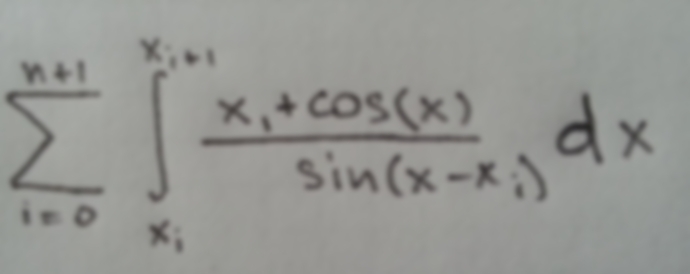 \sum_{i=0}^{n+1} \int_{x_i}^{x_{i+1}} \frac{x_i + \cos(x)}{\sin(x - x_i)} dx